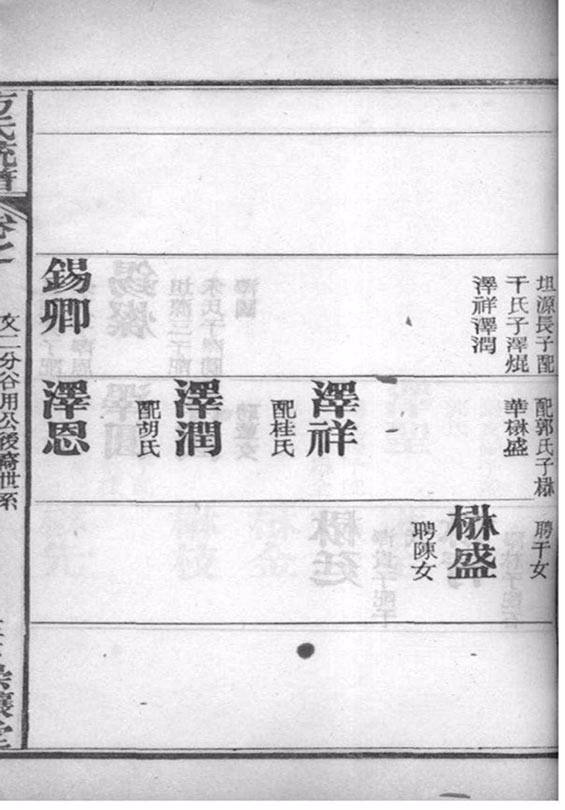 坦源長子配
干氏子澤焜
澤祥澤潤
錫卿
配郭氏子楙
華楙盛
澤祥
配桂氏
澤潤
配胡氏
澤恩
聘干女
楙盛
聘陳女
方氏統譜
卷之一
文二分谷用公後裔世系